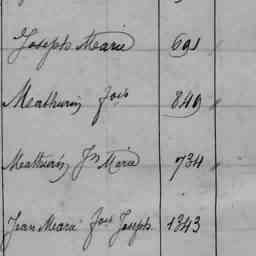 Joseph Marie 691
Mathurin fois 849
Mathurin Jn Marie 734
Jean Marie fois Joseph 1343